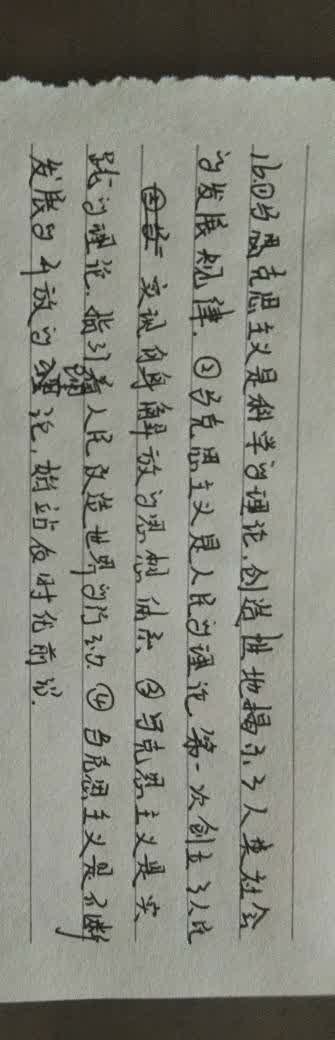 16.①马克思主义是科学的理论,创造性地揭示了人类社会
的发展规律.②马克思主义是人民的理论,第一次创立了人民
实现自身解放的思想体系.③马克思主义是实
践的理论,指引着人民改造世界的行动.④马克思主义是不断
发展的开放的理论,始终站在时代前沿.